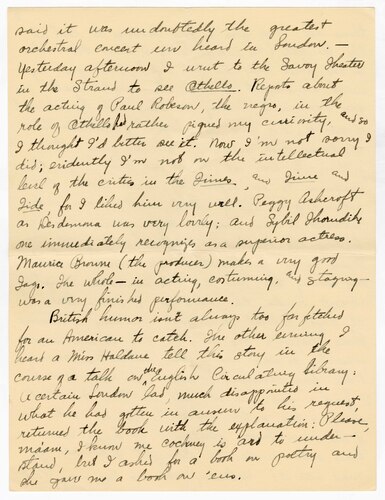 said it was undoubtedly the greatest
orchestral concert ever heard in London. —
Yesterday afternoon I went to the Savoy Theater
in the Strand to see Othello. Reports about
the acting of Paul Robeson, the negro, in the
role of Othello had rather piqued my curiosity, and so
I thought I'd better see it. Now, I'm not sorry I
did; evidently I'm not on the intellectual
level of the critics in the Times, and Time and
Tide for I liked him very well. Peggy Ashcroft
as Desdemona was very lovely; and Sybil Thorndike
one immediately recognizes as a superior actress.
Maurice Browne (the producer) makes a very good
Iago. The whole — in acting, costuming, and staging —
was a very finished performance.
British humor isn't always too far fetched
for an American to catch. The other evening I
heard a Miss Haldane tell this story in the
course of a talk on the English Circulating Library:
A certain London lad, much disappointed in
what he had gotten in answer to his request,
returned the book with the explanation: Please,
maam, I know me cockney is 'ard to under-
stand, but I asked for a book on poetry and
she gave me a book on 'ens.